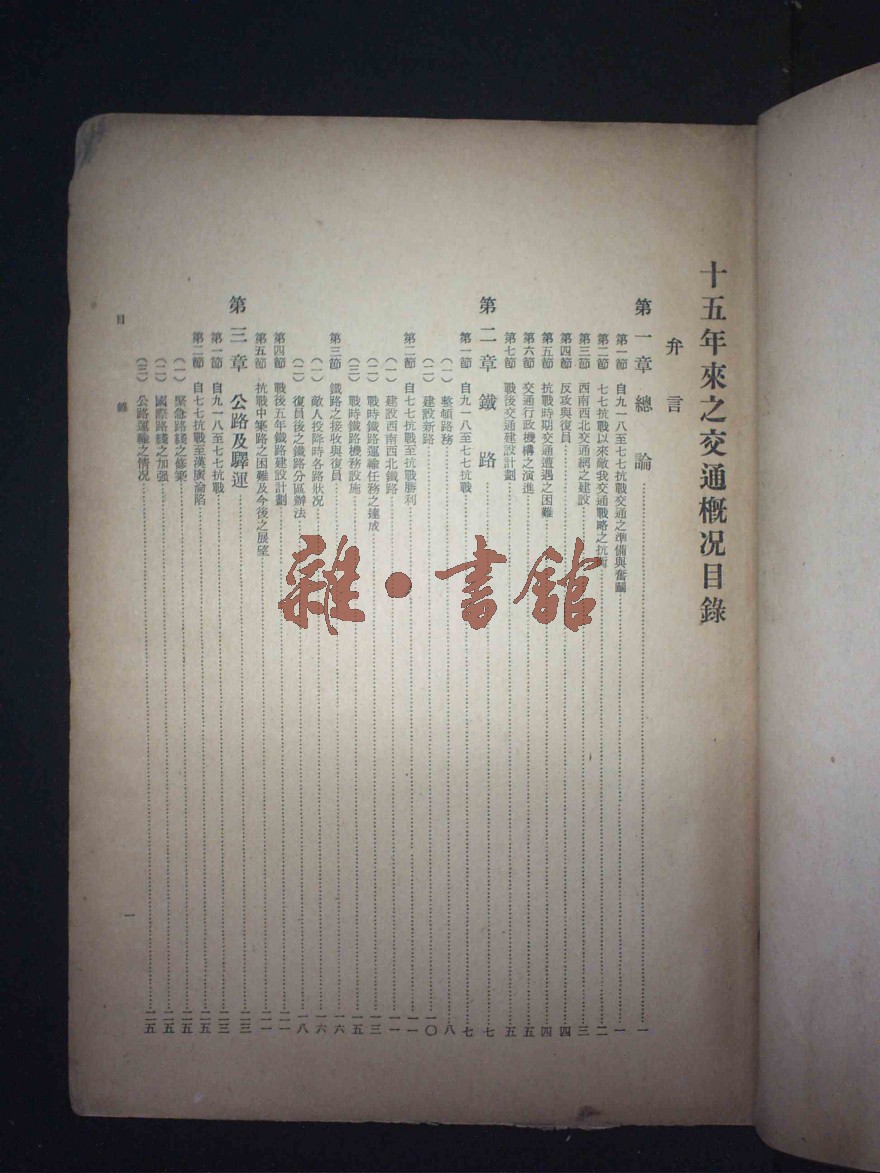 十五年來之交通概况目錄
弁言
第一章 總論……一
第一節 自九一八至七七抗戰交通之準備與奮鬭……一
第二節 七七抗戰以來敵我交通戰略之抗衡……二
第三節 西南西北交通網之建設……三
第四節 反攻與復員……四
第五節 抗戰時期交通遭遇之困難……四
第六節 交通行政機構之演進……五
第七節 戰後交通建設計劃……五
第二章 鐵路……七
第一節 自九一八至七七抗戰……七
（一）整頓路務……八
（二）建設新路……一〇
第二節 自七七抗戰至抗戰勝利……一一
（一）建設西南西北鐵路……一一
（二）戰時鐵路運輸任務之達成……一三
（三）戰時鐵路機務設施……一五
第三節 鐵路之接收與復員……一六
（一）敵人投降時各路狀况……一六
（二）復員後之鐵路分區辦法……一八
第四節 戰後五年鐵路建設計劃……二一
第五節 抗戰中築路之困難及今後之展望……二一
第三章 公路及驛運……二三
第一節 自九一八至七七抗戰……二三
第二節 自七七抗戰至漢廣淪陷……二五
（一）緊急路綫之修築……二五
（二）國際路綫之加强……二五
（三）公路運輸之情况……二五
目錄
一
雜·書館